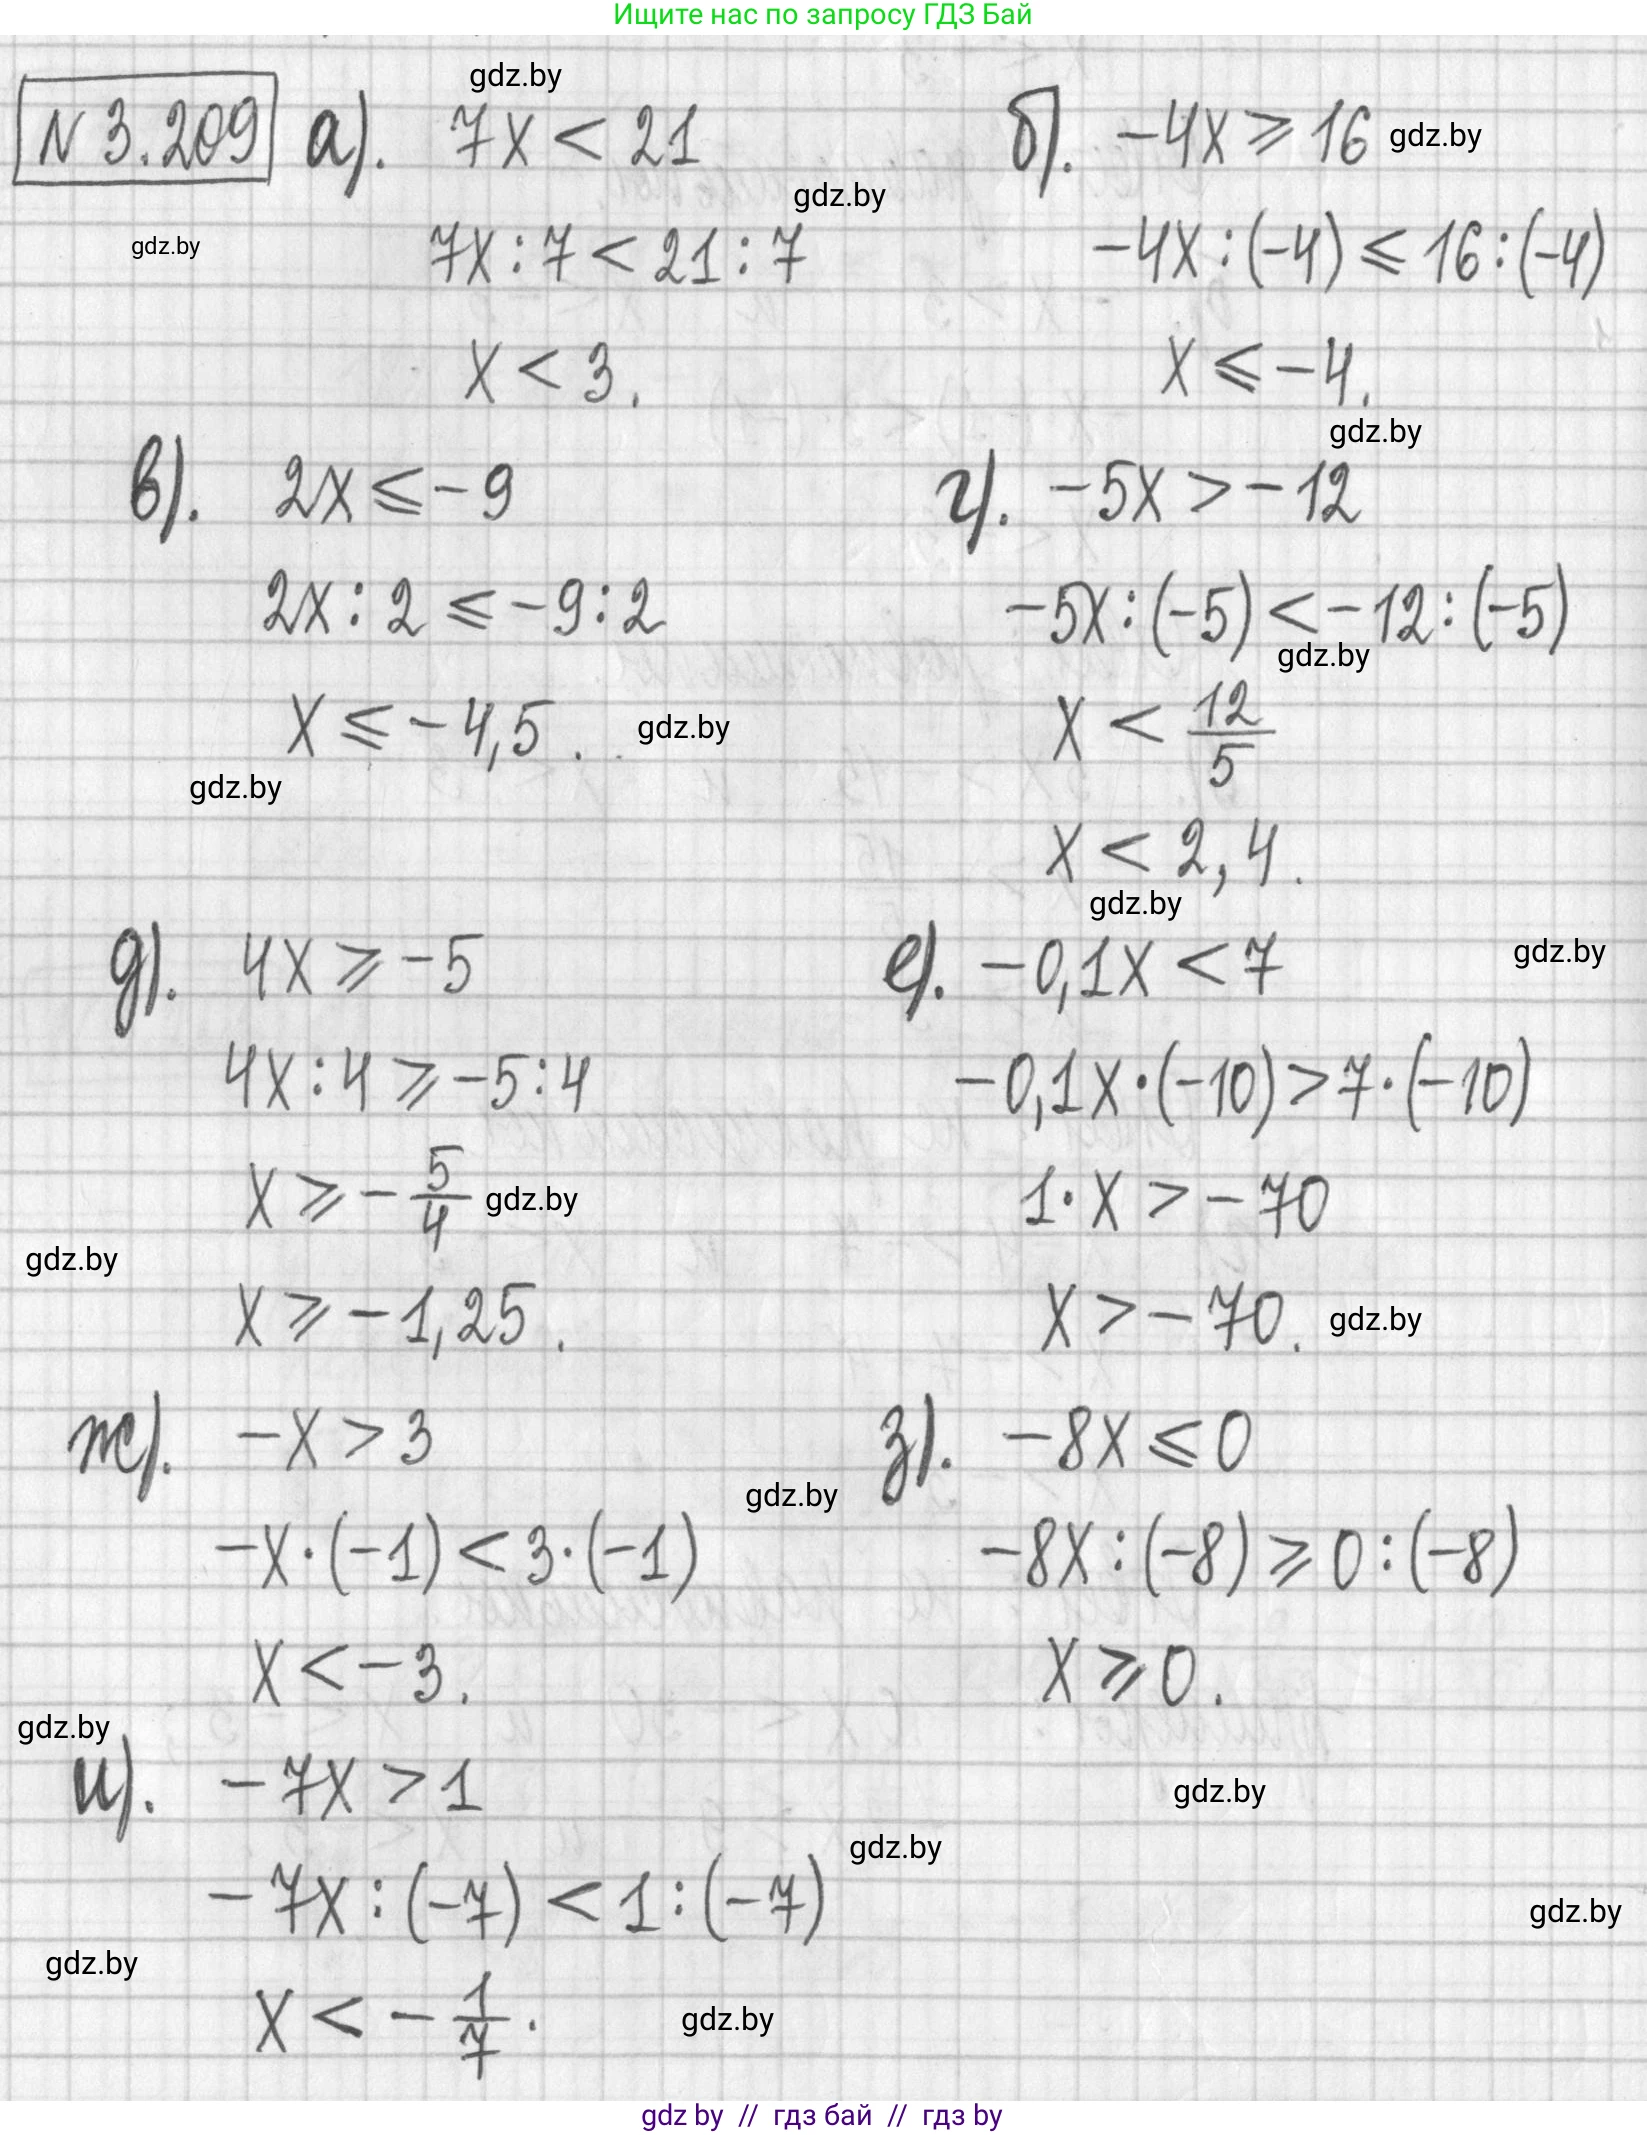 Ищите нас по запросу ГДЗ Бай
gdz.by
N 3.209 а). 7x < 21
б). -4x ⩾ 16 gdz.by
gdz.by
gdz.by
7x : 7 < 21 : 7
-4x : (-4) ⩽ 16 : (-4)
x < 3.
x ⩽ -4.
gdz.by
в). 2x ⩽ -9
г). -5x > -12
2x : 2 ⩽ -9 : 2
-5x : (-5) < -12 : (-5)
gdz.by
x ⩽ -4,5. gdz.by
x < 12/5
gdz.by
x < 2,4.
gdz.by
д). 4x ⩾ -5
е). -0,1x < 7 gdz.by
4x : 4 ⩾ -5 : 4
-0,1x · (-10) > 7 · (-10)
x ⩾ -5/4 gdz.by
1 · x > -70
gdz.by
x ⩾ -1,25.
x > -70. gdz.by
ж). -x > 3
з). -8x ⩽ 0
gdz.by
-x · (-1) < 3 · (-1)
-8x : (-8) ⩾ 0 : (-8)
x < -3.
x ⩾ 0.
gdz.by
и). -7x > 1
gdz.by
gdz.by
-7x : (-7) < 1 : (-7)
gdz.by
gdz.by
x < -1/7.
gdz.by
gdz by // гдз бай // гдз by